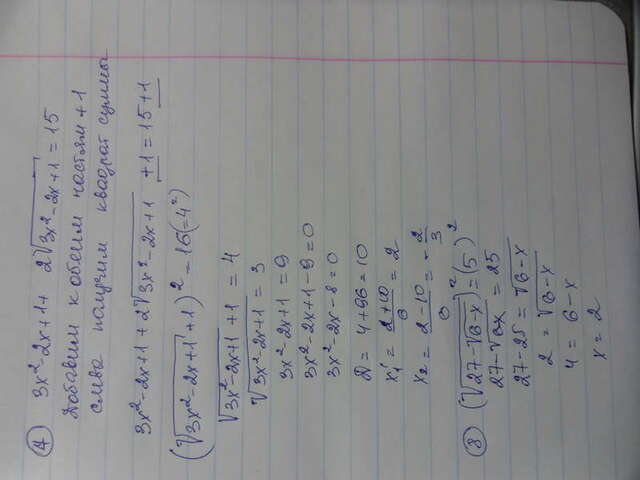 ④ 3x²-2x+1+ 2√(3x²-2x+1) = 15
Добавим к обеим частям +1
слева получим квадрат суммы
3x²-2x+1+2√(3x²-2x+1) +1 = 15+1
(√(3x²-2x+1)+1)² = 16(=4²)
√(3x²-2x+1) +1 = 4
√(3x²-2x+1) = 3
3x²-2x+1 = 9
3x²-2x+1-9=0
3x²-2x-8=0
D = 4+96=10
x₁ = (2+10)/6 = 2
x₂ = (2-10)/6 = -2/3
⑧ (√(27-√(6-x)))² = (5)²
27-√(6x) = 25
27-25 = √(6-x)
2 = √(6-x)
4 = 6-x
x = 2